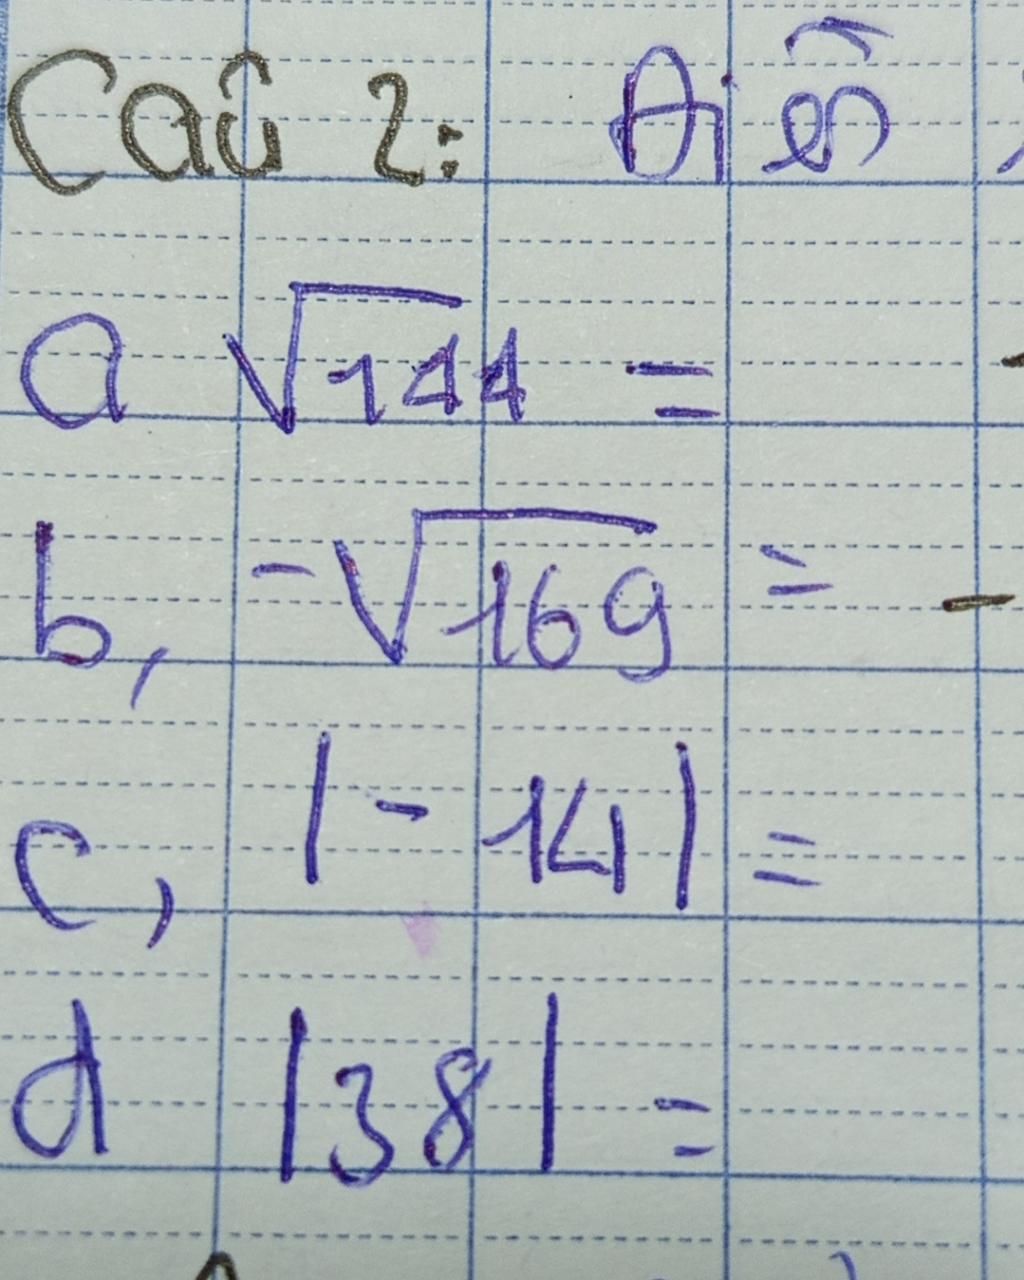 Câu 2: Điền
a √144 =
b, -√169 = -
c, |- 14| =
d |38| =